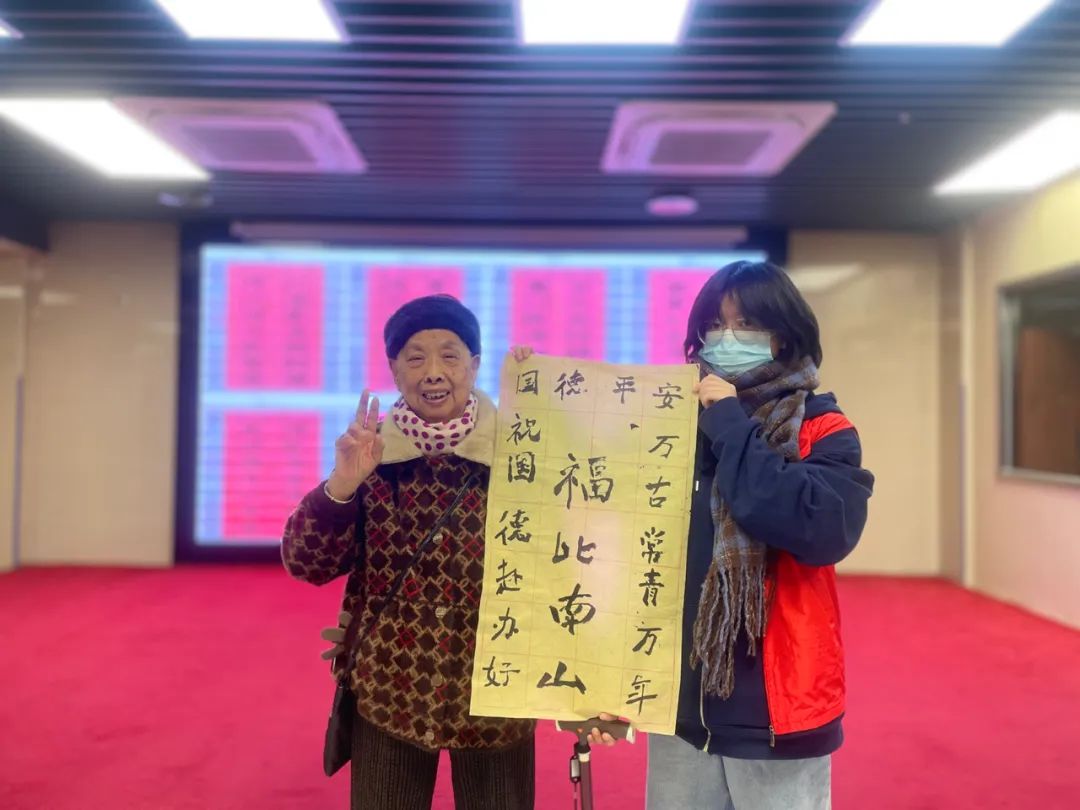 国德平安
万古常青万年
福比南山
祝国德赴办好